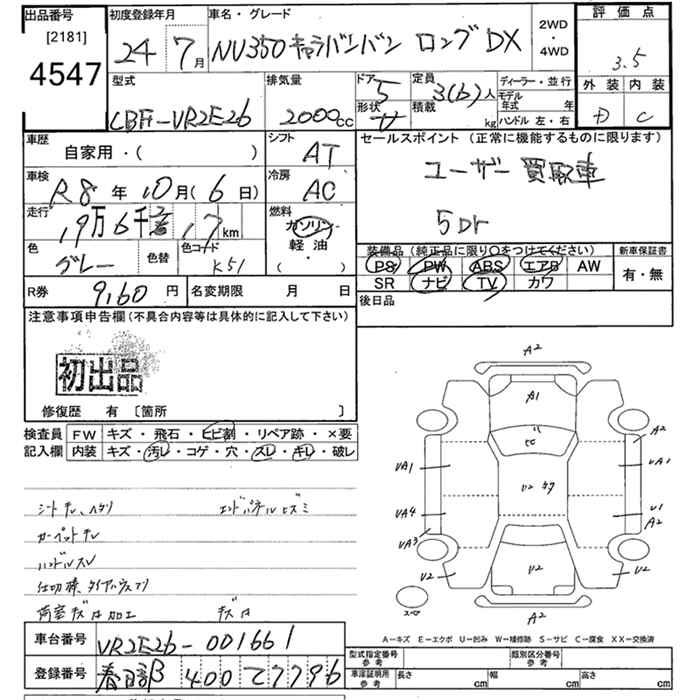 出品番号 [2181] 4547
初度登録年月 24年 7月
車名・グレード NV350キャラバンバン ロングDX
2WD・4WD
評価点 3.5
外装 D 内装 C
型式 CBF-VR2E26
排気量 2000cc
ドア 5
形状 V
定員 3(6)人
積載 kg
ディーラー・並行
モデル年式 年
ハンドル 左・右
車歴 自家用・( )
シフト AT
セールスポイント (正常に機能するものに限ります)
ユーザー買取車
5Dr
車検 R8年10月(6日)
冷房 AC
走行 19万6千 17km
燃料 ガソリン 軽油 ( ・ )
色 グレー
色替
色コード K51
装備品 (純正品に限り○をつけてください)
新車保証書
PS PW ABS エアB AW
有・無
SR ナビ TV カワ
R券 9,160円
名変期限 月 日
後日品
注意事項申告欄 (不具合内容等は具体的に記入して下さい)
初出品
修復歴 有 〔箇所 〕
検査員 FW キズ・飛石・ヒビ割・リペア跡・×要
記入欄 内装 キズ・汚レ・コゲ・穴・スレ・キレ・破レ
シートキレ、ヘタリ
エンドパネルヒズミ
カーペットキレ
ハンドルスレ
荷室キズ 加工
A2
A1
A2
UA1 UA1
U2
UA4 U1
A2
UA3
U2 U2 U2
スペア
A2
A−キズ E−エクボ U−凹み W−補修跡 S−サビ C−腐食 XX−交換済
車台番号 VR2E26-001661
型式指定番号 参考
類別区分番号 参考
登録番号 春日部 400 て 7796
車庫証明用 参考
長さ cm 幅 cm 高さ cm